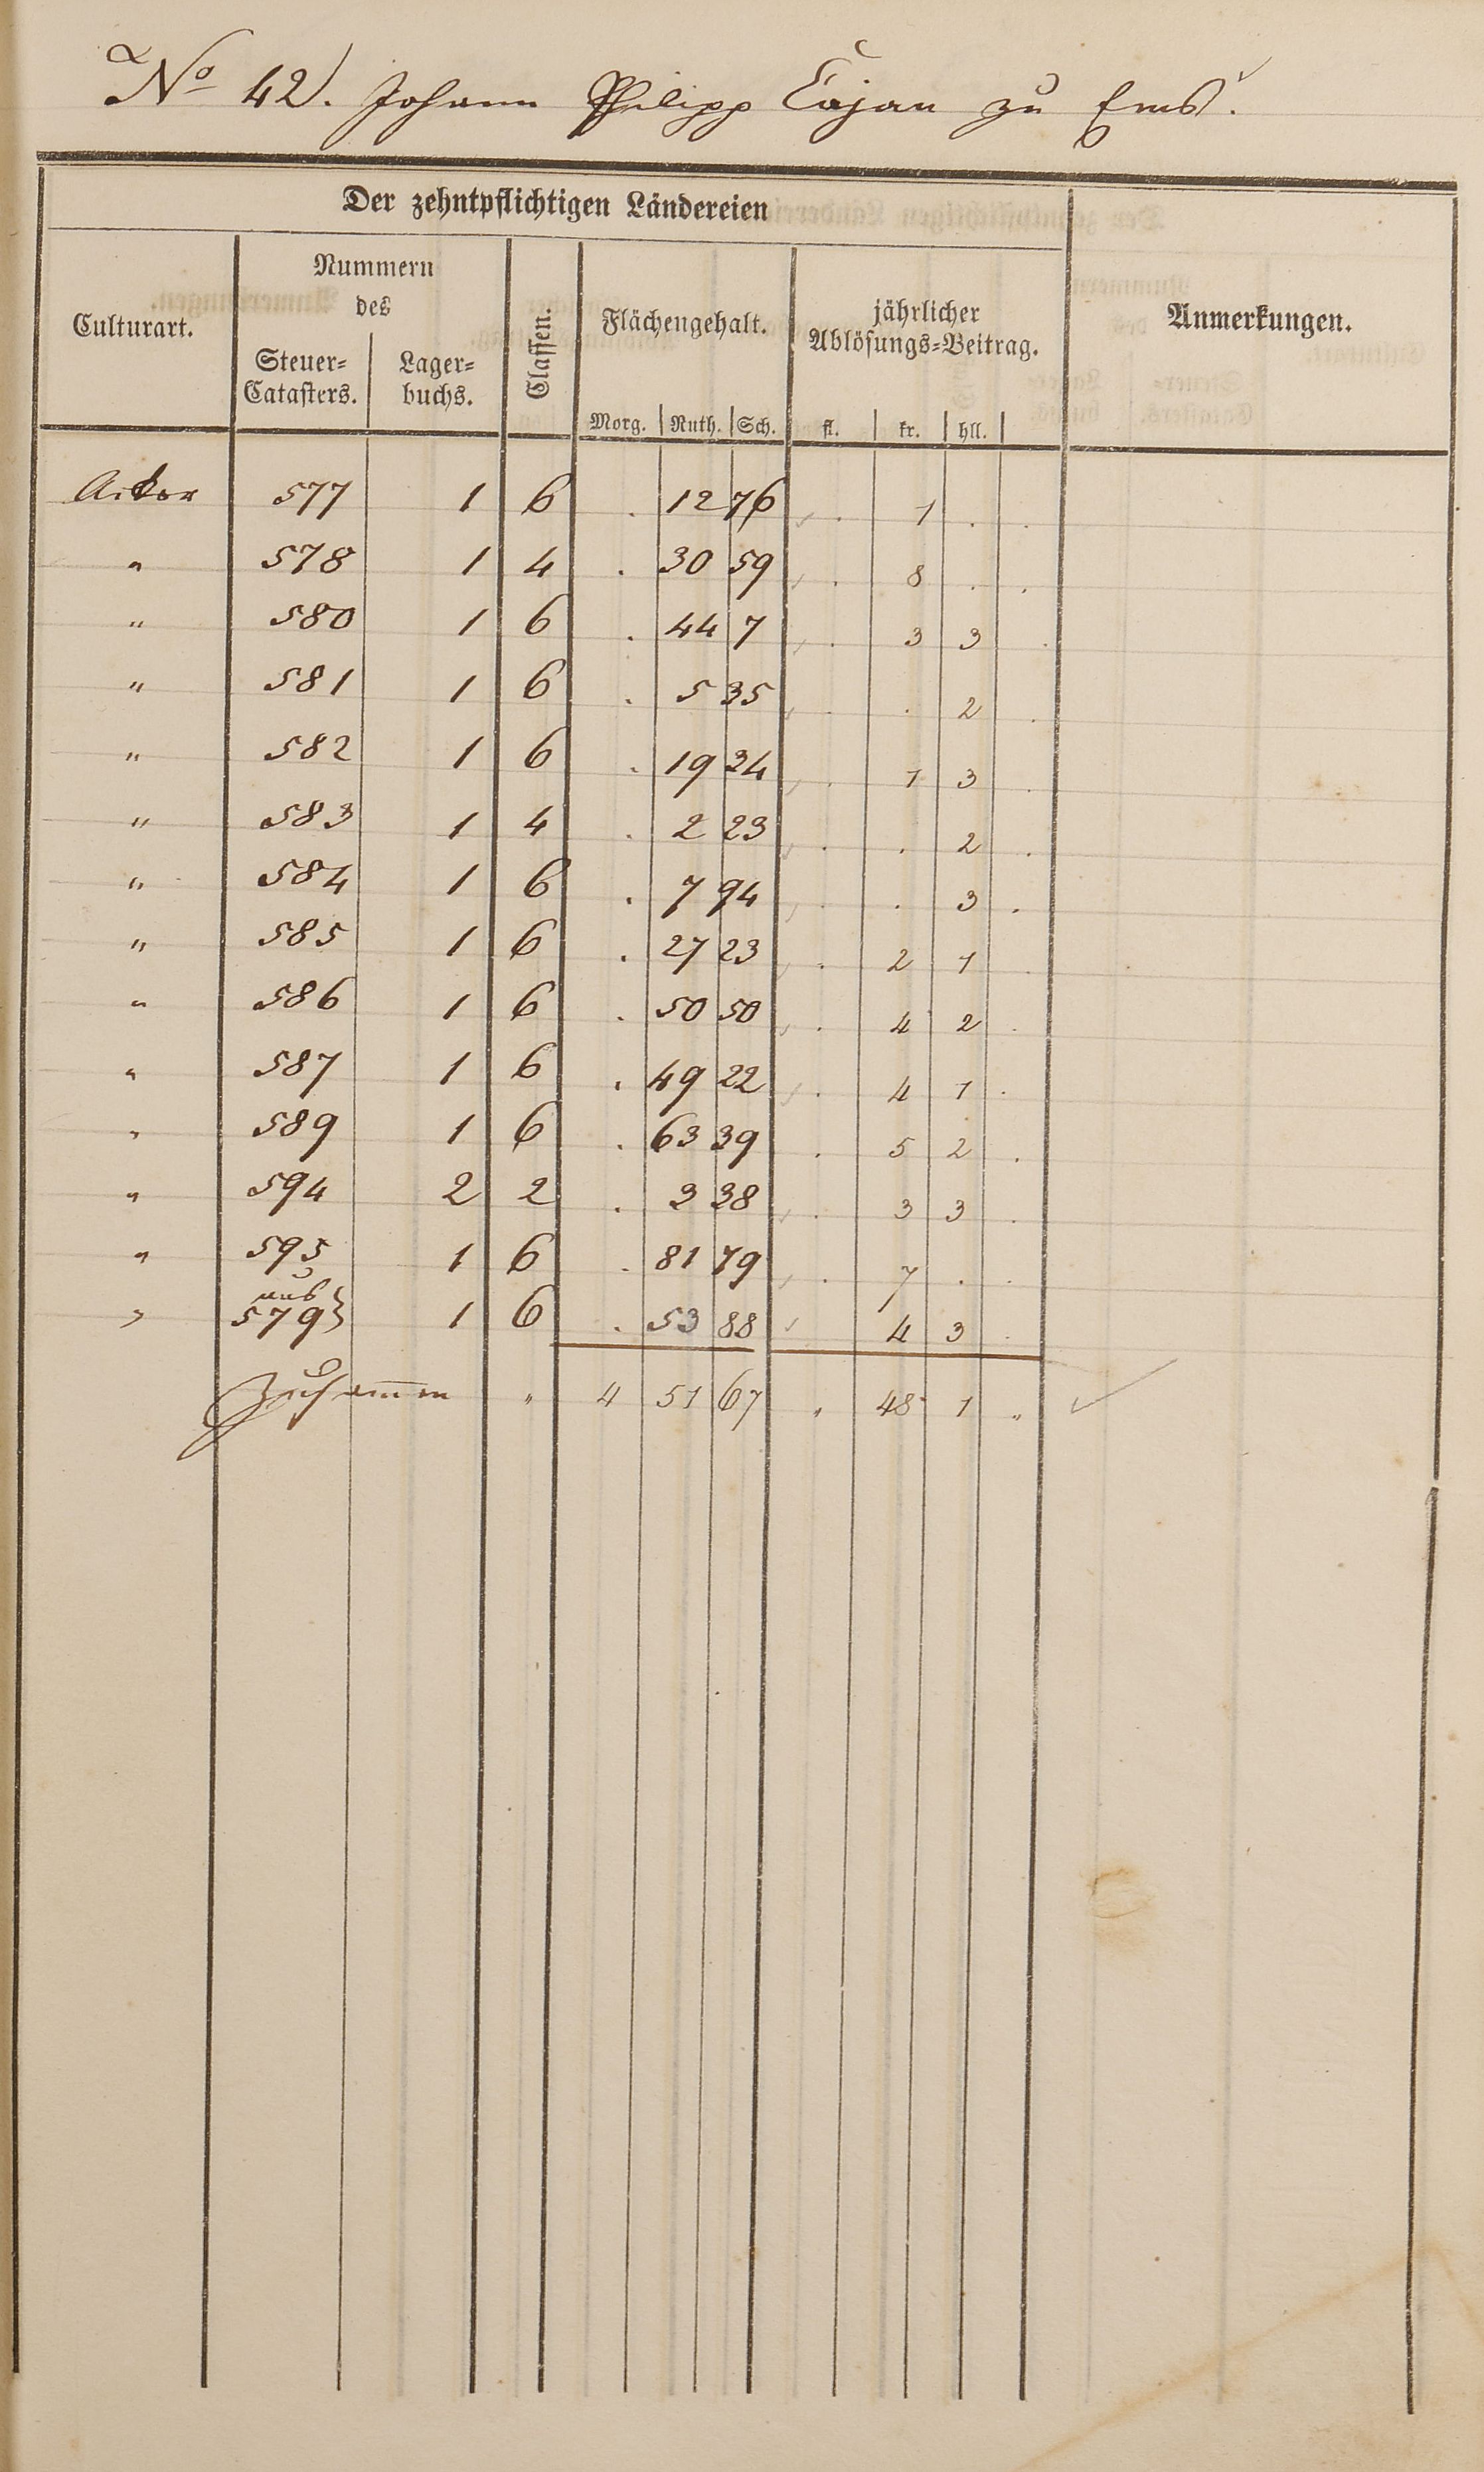 No 42. Johann Philipp Cajan zu Ems.
Der zehntpflichtigen Ländereien
Culturart. Nummern des Classen. Flächengehalt. jährlicher Ablösungs-Beitrag. Anmerkungen.
Steuer-Catasters. Lager-buchs.
Morg. Ruth. Sch. fl. kr. hll.
Acker 577 1 6 . 12 76 . 1 . .
" 578 1 4 . 30 59 . 8 . .
" 580 1 6 . 44 7 . 3 3 .
" 581 1 6 . 5 35 . . 2 .
" 582 1 6 . 19 34 . 1 3 .
" 583 1 4 . 2 23 . . 2 .
" 584 1 6 . 7 94 . . 3 .
" 585 1 6 . 27 23 . 2 1 .
" 586 1 6 . 50 50 . 4 2 .
" 587 1 6 . 49 22 . 4 1 .
" 589 1 6 . 63 39 . 5 2 .
" 594 2 2 . 3 38 . 3 3 .
" 595 1 6 . 81 79 . 7 . .
aus
" 579} 1 6 . 53 88 4 3 .
Zusammen " 4 51 67 " 48 1 "